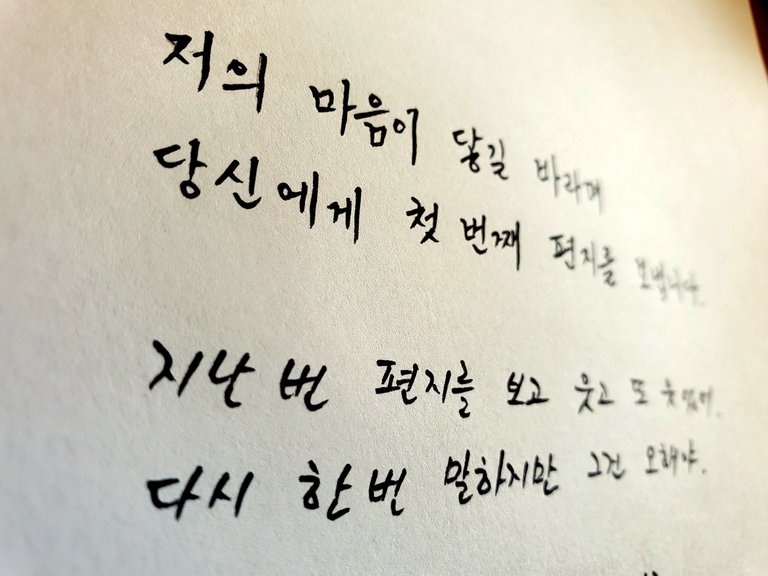 저의 마음이 닿길 바라며
당신에게 첫 번째 편지를 보냅니다.
지난 번 편지를 보고 웃고 또 웃었어.
다시 한번 말하지만 그건 오해야.